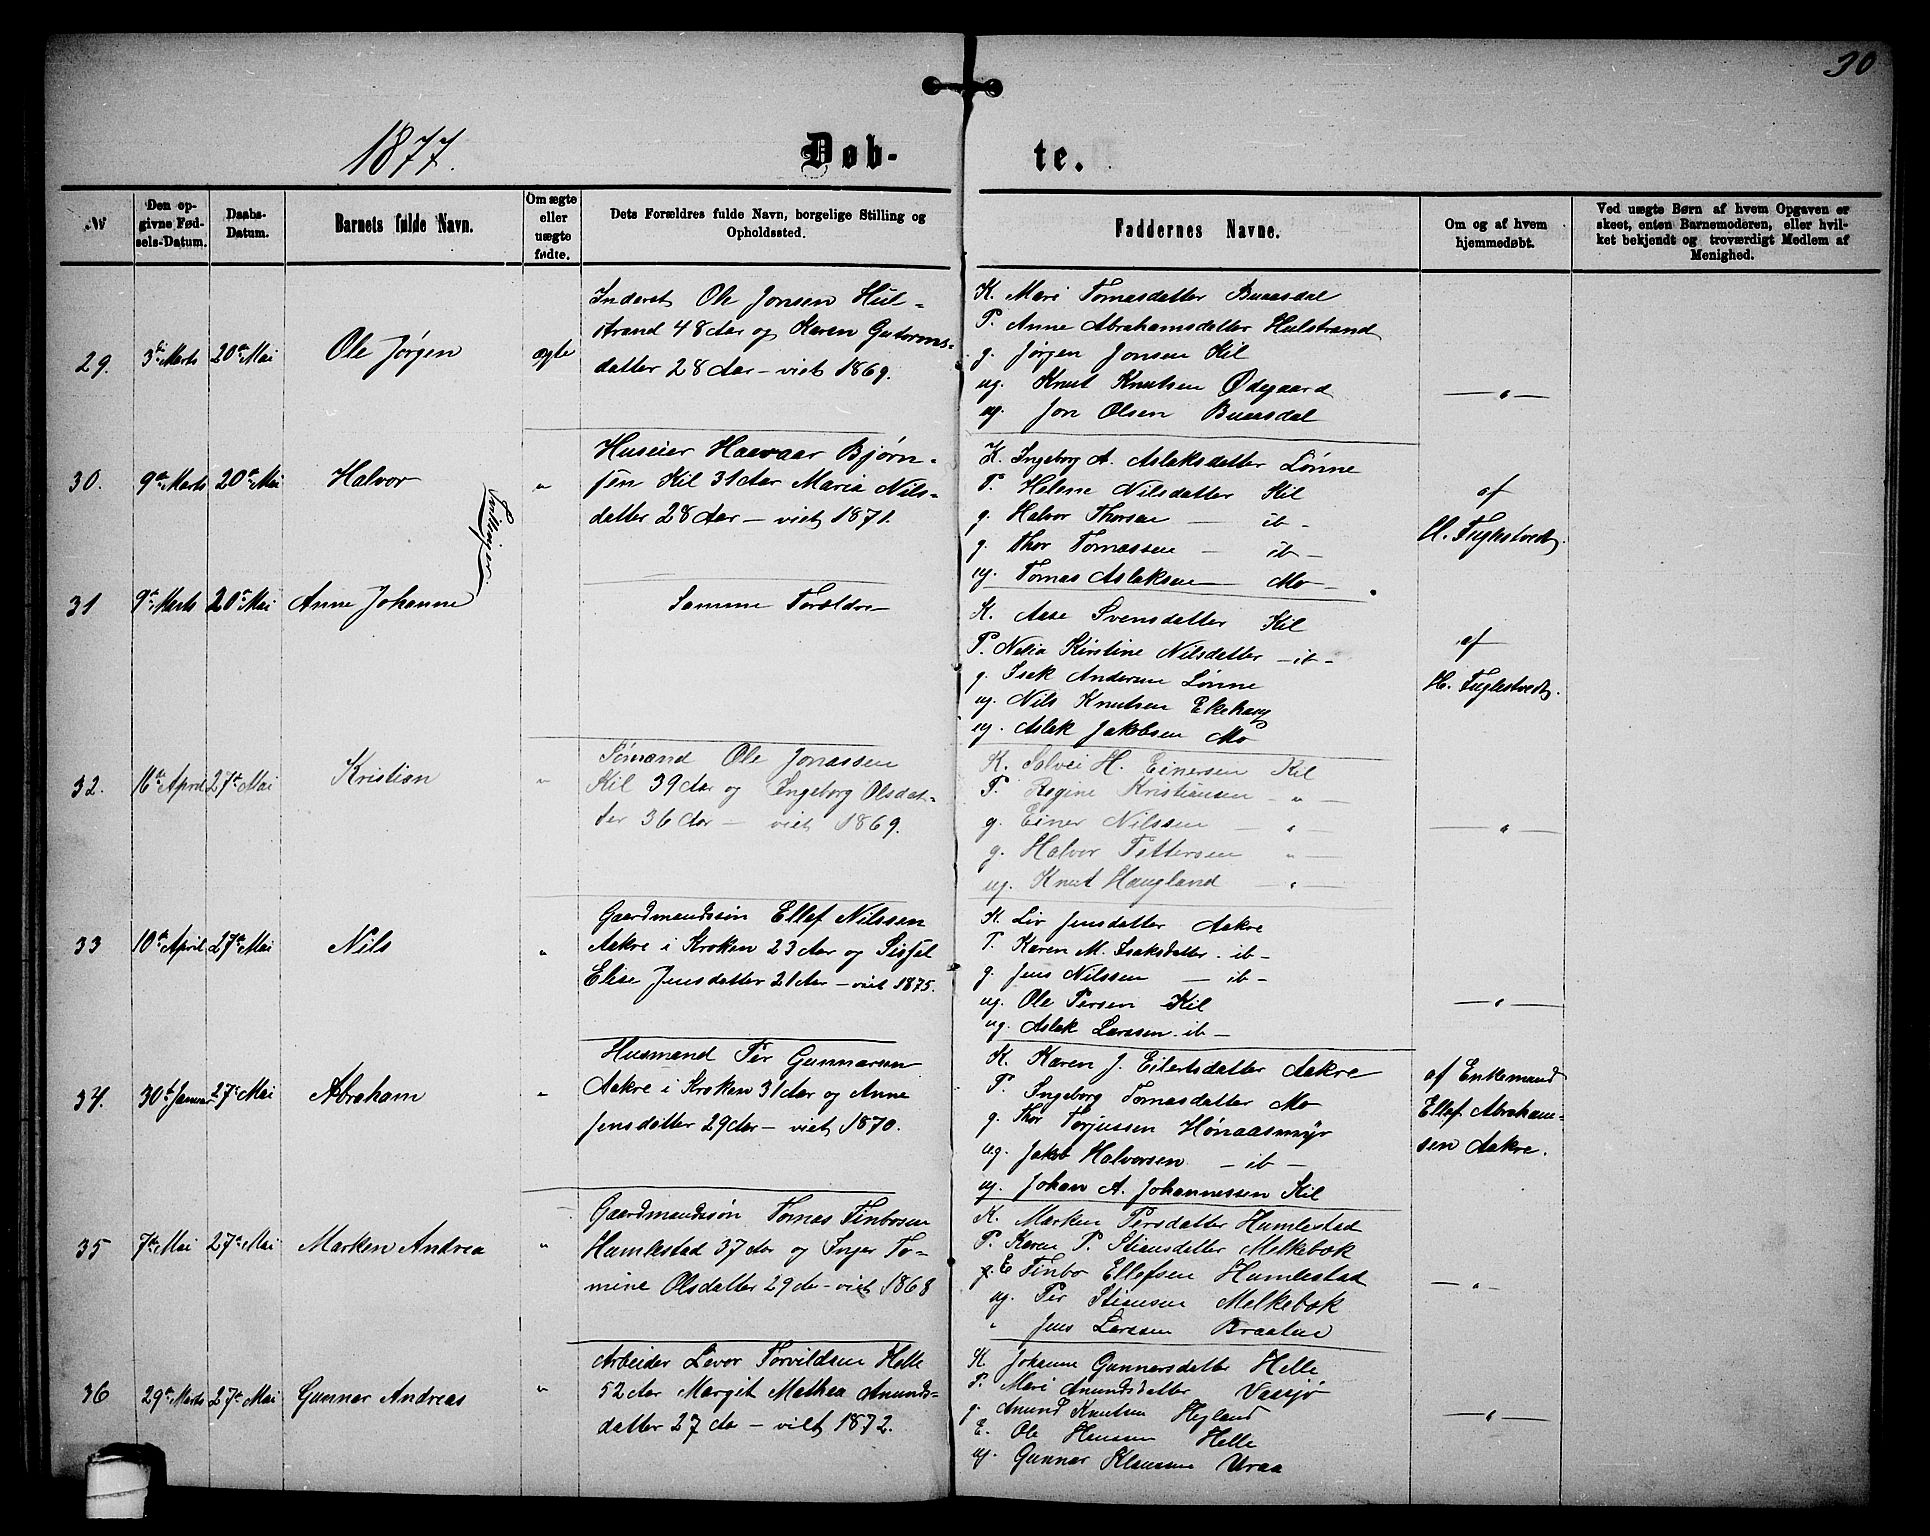 30
1877.
Døb-
te.
№
Den op-
givne Fød-
sels-Datum.
Daabs-
Datum.
Barnets fulde Navn.
Om ægte
eller
uægte
fødte.
Dets Forældres fulde Navn, borgelige Stilling og
Opholdssted.
Faddernes Navne.
Om og af hvem
hjemmedøbt.
Ved uægte Børn af hvem Opgaven er
skeet, enten Barnemoderen, eller hvil-
ket bekjendt og troværdigt Medlem af
Menighed.
29. 3die Marts 20de Mai Ole Jørgen ægte
Inderst Ole Jonsen Hul-
strand 48 Aar og Karen Gutorms-
datter 28 Aar – viet 1869.
K. Mari Tomasdatter Buaasdal
P. Anne Abrahamsdatter Hulstrand
g. Jørgen Jonsen Kil
ug. Knut Knutsen Ødegaard
ug. Jon Olsen Buaasdal
— " —
30. 9de Marts 20de Mai Halvor "
Tvillinger
Huseier Haavaar Bjørn-
sen Kil 31 Aar Maria Nils-
datter 28 Aar – viet 1871.
K. Ingeborg A. Aslaksdatter Lønne
P. Helene Nilsdatter Kil
g. Halvor Thorsen — ib –
g. Thor Tomassen — ib –
ug. Tomas Aslaksen Mo
af
H. Fuglestvedt.
31 9de Marts 20de Mai Anne Johanne
Samme Forældre
K. Aase Svensdatter Kil
P. Nelia Kirstine Nilsdatter – ib –
g. Isak Andersen Lønne
ug. Nils Knutsen Ekehaug
ug. Aslak Jakobsen Mo
af
H. Fuglestvedt.
32. 16de April 27de Mai Kristian "
Sømand Ole Jonassen
Kil 39 Aar og Ingeborg Olsdat-
ter 36 Aar – viet 1869.
K. Solvei H. Einersen Kil
P. Regine Kristiansen – " –
g. Einer Nilssen — " —
g. Halvor Pettersen " —
ug. Knut Haugland — " —
— " —
33 10de April 27de Mai Nils "
Gaardmandssøn Ellef Nilssen
Aakre i Kroken 23 Aar og Sissel
Elise Jensdatter 21 Aar – viet 1875.
K. Liv Jensdatter Aakre
P. Karen M. Isaksdatter. ib –
g. Jens Nilssen — ib –
ug. Ole Persen Kil
ug. Aslak Larssen. ib –
— " —
34. 30te Januar 27de Mai Abraham "
Husmand Per Gunnarsen
Aakre i Kroken 31 Aar og Anne
Jensdatter 29 Aar – viet 1870.
K. Karen J. Eilertsdatter Aakre
P. Ingeborg Tomasdatter Mo
g. Thor Torjussen Hønaasmyr
ug. Jakob Halvorsen — ib —
ug. Johan A. Johannessen Kil
af Enkemand
Ellef Abraham-
sen Aakre.
35 7de Mai 27de Mai Marken Andrea "
Gaardmandssøn Tomas Finbosen
Humlestad 37 Aar og Inger To-
mine Olsdatter 29 Aar – viet 1868
K. Marken Persdatter Humlestad
P. Karen P. Stiansdatter Melkebøk
g. E Finbo Ellefsen Humlestad
ug. Per Stiansen Melkebøk
" Jens Larssen Braatene
— " —
36 29de Marts 27de Mai Gunnar Andreas "
Arbeider Levor Torvildsen Helle
52 Aar Margit Mathea Anunds-
datter 27 Aar – viet 1872.
K. Johanne Gunnarsdatter Helle
P. Mari Anundsdatter Vassjø
g. Anund Knutsen Hegland
E. Ole Hanssen Helle
ug. Gunnar Klaussen Uraa
— " —